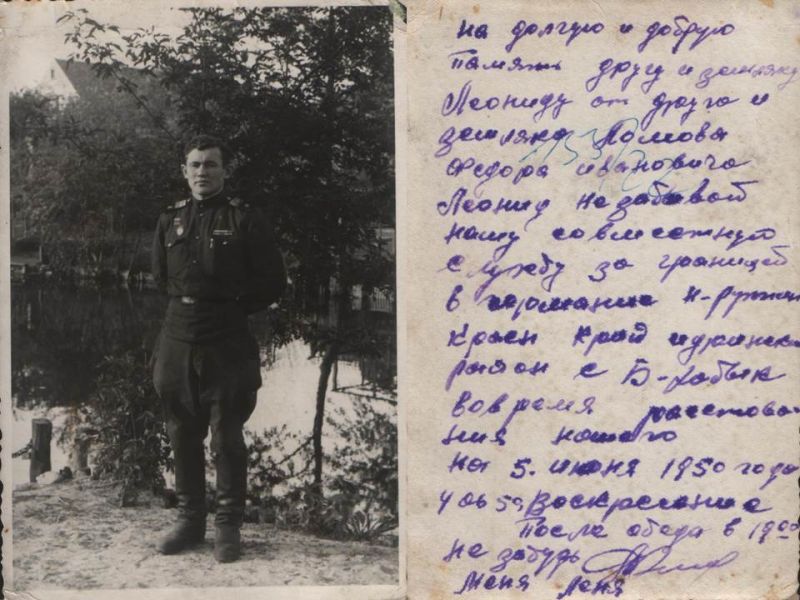 на долгую и добрую
память другу и земляку
Леониду от друга и
земляка Ломова
Федора ивановича
Леонид незабывай
нашу совместную
службу за границей
в германие
Красн край идринск
район с Б-хабык
вовремя расстова
ния нашего
на 5. июня 1950 года
Воскресение
После обеда в 19 00
не забудь
меня Лёня